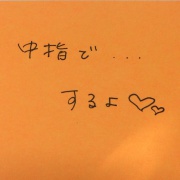 中指で...
するよ♡♡